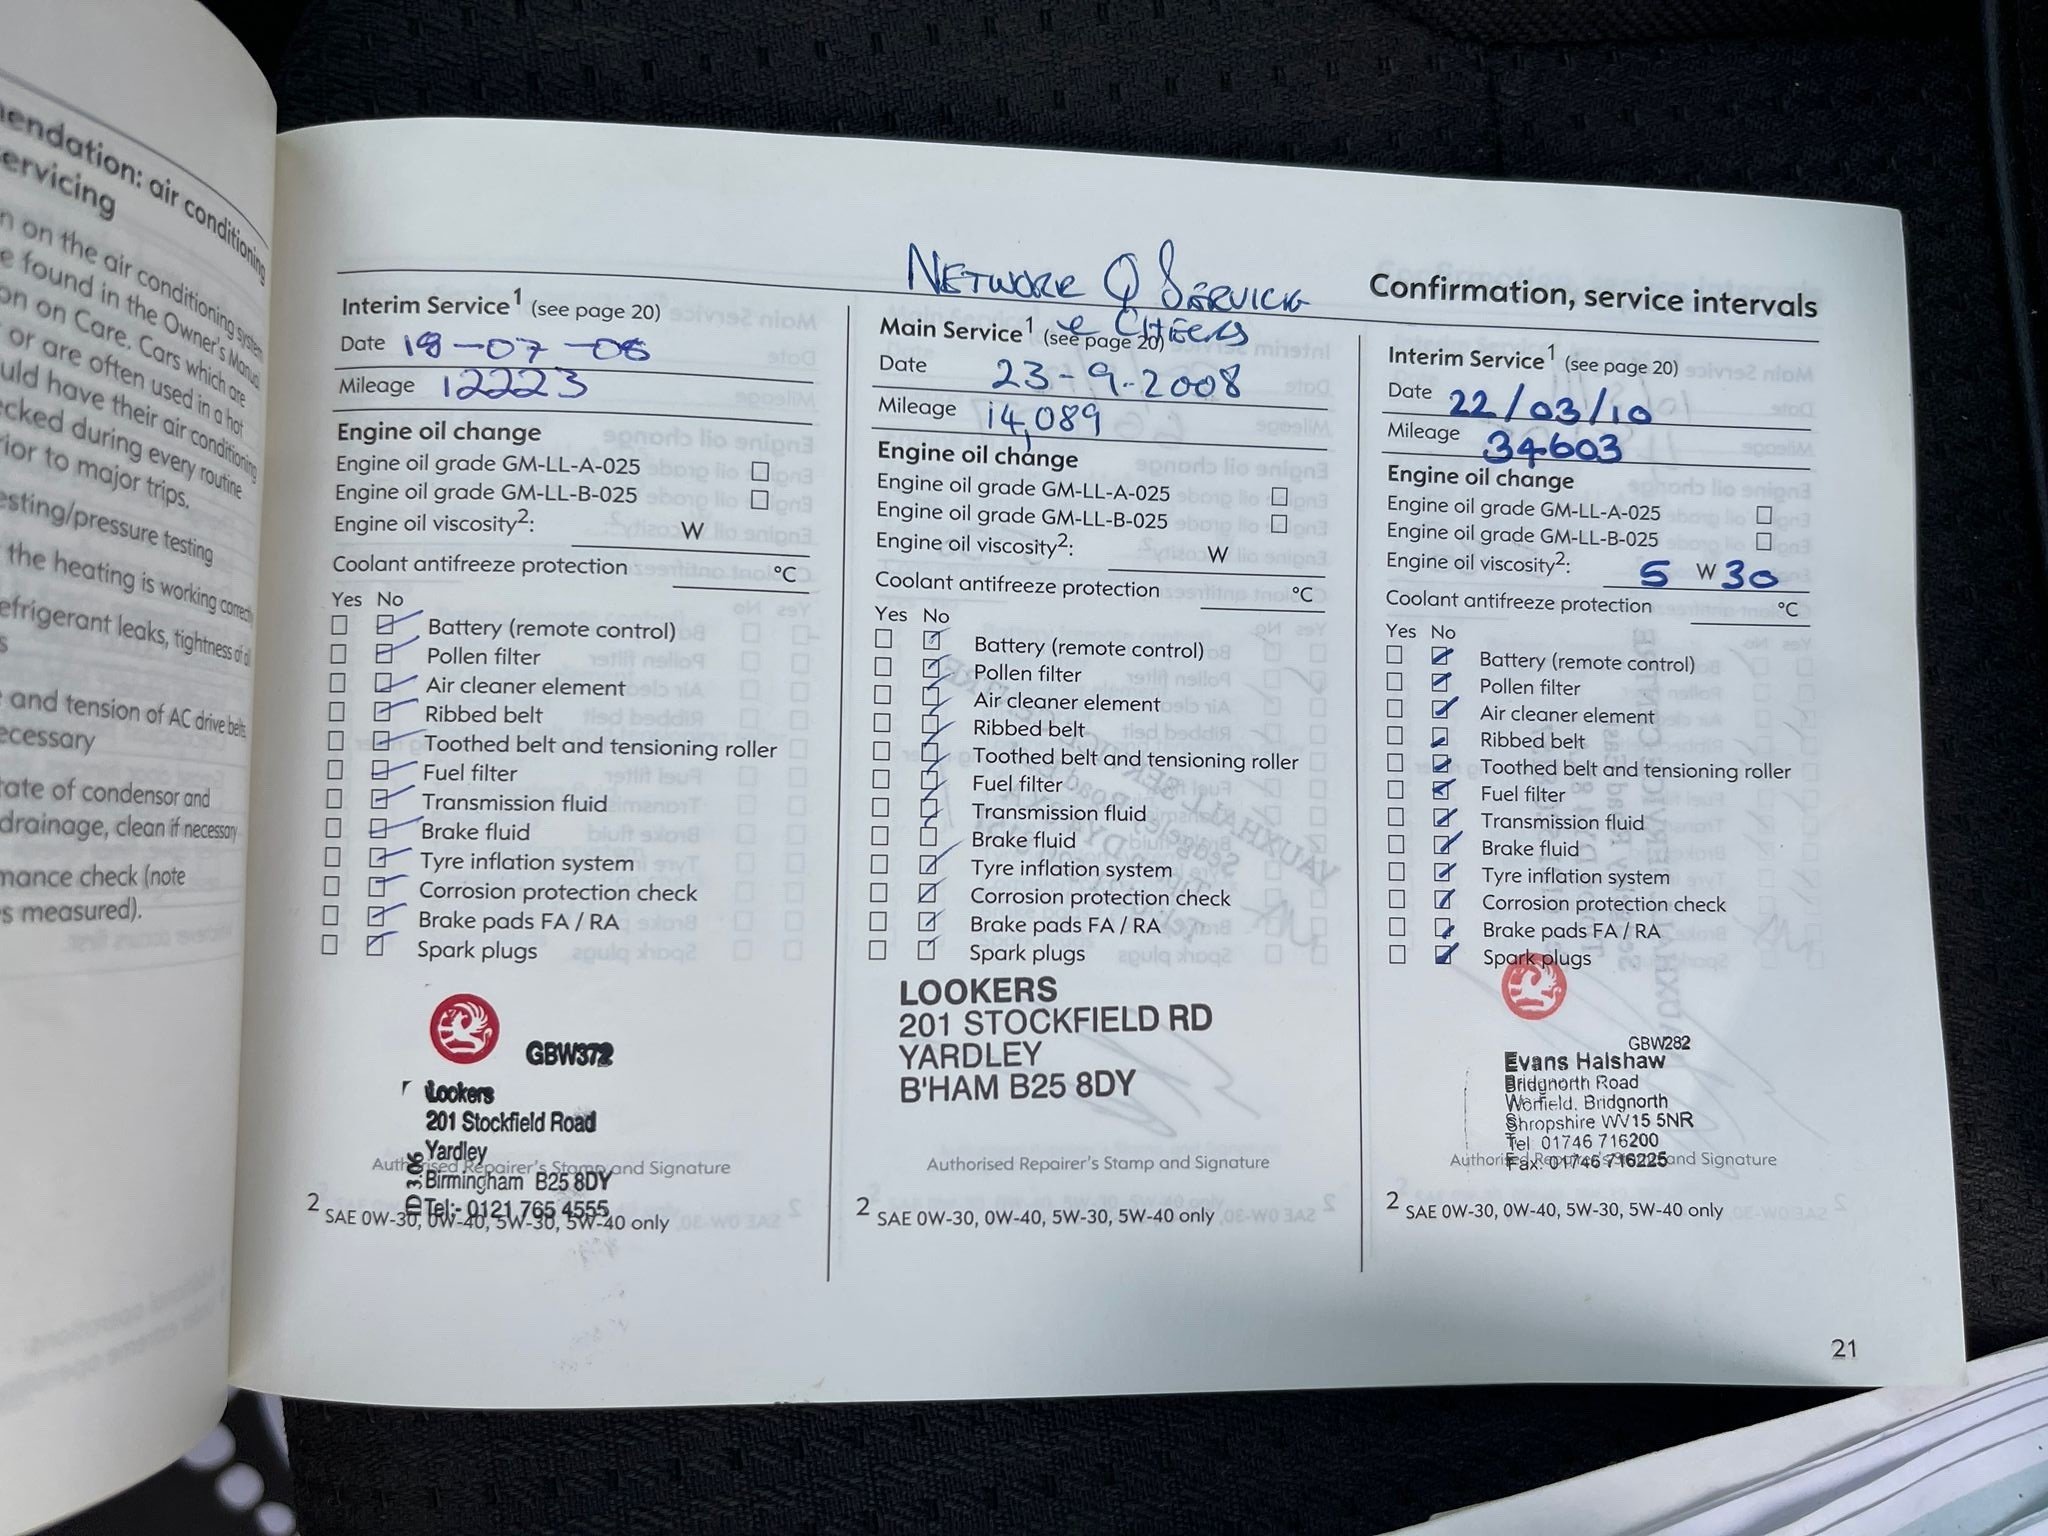 endation: air conditioning
ervicing
n on the air conditioning system
e found in the Owner's Manual
on on Care. Cars which are
or are often used in a hot
uld have their air conditioning
ecked during every routine
rior to major trips.
esting/pressure testing
the heating is working correctly
efrigerant leaks, tightness of all
s
and tension of AC drive belts
ecessary
tate of condensor and
drainage, clean if necessary
mance check (note
s measured).
NETWORK Q SERVICE
& CHECKS
Confirmation, service intervals
Interim Service1 (see page 20)
Date 18-07-06
Mileage 12223
Engine oil change
Engine oil grade GM-LL-A-025
Engine oil grade GM-LL-B-025
Engine oil viscosity2: W
Coolant antifreeze protection °C
Yes No
Battery (remote control)
Pollen filter
Air cleaner element
Ribbed belt
Toothed belt and tensioning roller
Fuel filter
Transmission fluid
Brake fluid
Tyre inflation system
Corrosion protection check
Brake pads FA / RA
Spark plugs
GBW372
Lookers
201 Stockfield Road
Yardley
Birmingham B25 8DY
Tel:- 0121 765 4555
ID 3.06
Authorised Repairer's Stamp and Signature
2 SAE 0W-30, 0W-40, 5W-30, 5W-40 only
Main Service1 (see page 20)
Date 23-9-2008
Mileage 14,089
Engine oil change
Engine oil grade GM-LL-A-025
Engine oil grade GM-LL-B-025
Engine oil viscosity2: W
Coolant antifreeze protection °C
Yes No
Battery (remote control)
Pollen filter
Air cleaner element
Ribbed belt
Toothed belt and tensioning roller
Fuel filter
Transmission fluid
Brake fluid
Tyre inflation system
Corrosion protection check
Brake pads FA / RA
Spark plugs
LOOKERS
201 STOCKFIELD RD
YARDLEY
B'HAM B25 8DY
Authorised Repairer's Stamp and Signature
2 SAE 0W-30, 0W-40, 5W-30, 5W-40 only
Interim Service1 (see page 20)
Date 22/03/10
Mileage 34603
Engine oil change
Engine oil grade GM-LL-A-025
Engine oil grade GM-LL-B-025
Engine oil viscosity2: 5 W 30
Coolant antifreeze protection °C
Yes No
Battery (remote control)
Pollen filter
Air cleaner element
Ribbed belt
Toothed belt and tensioning roller
Fuel filter
Transmission fluid
Brake fluid
Tyre inflation system
Corrosion protection check
Brake pads FA / RA
Spark plugs
GBW282
Evans Halshaw
Bridgnorth Road
Worfield. Bridgnorth
Shropshire WV15 5NR
Tel 01746 716200
Fax. 01746 716225
Authorised Repairer's Stamp and Signature
2 SAE 0W-30, 0W-40, 5W-30, 5W-40 only
21